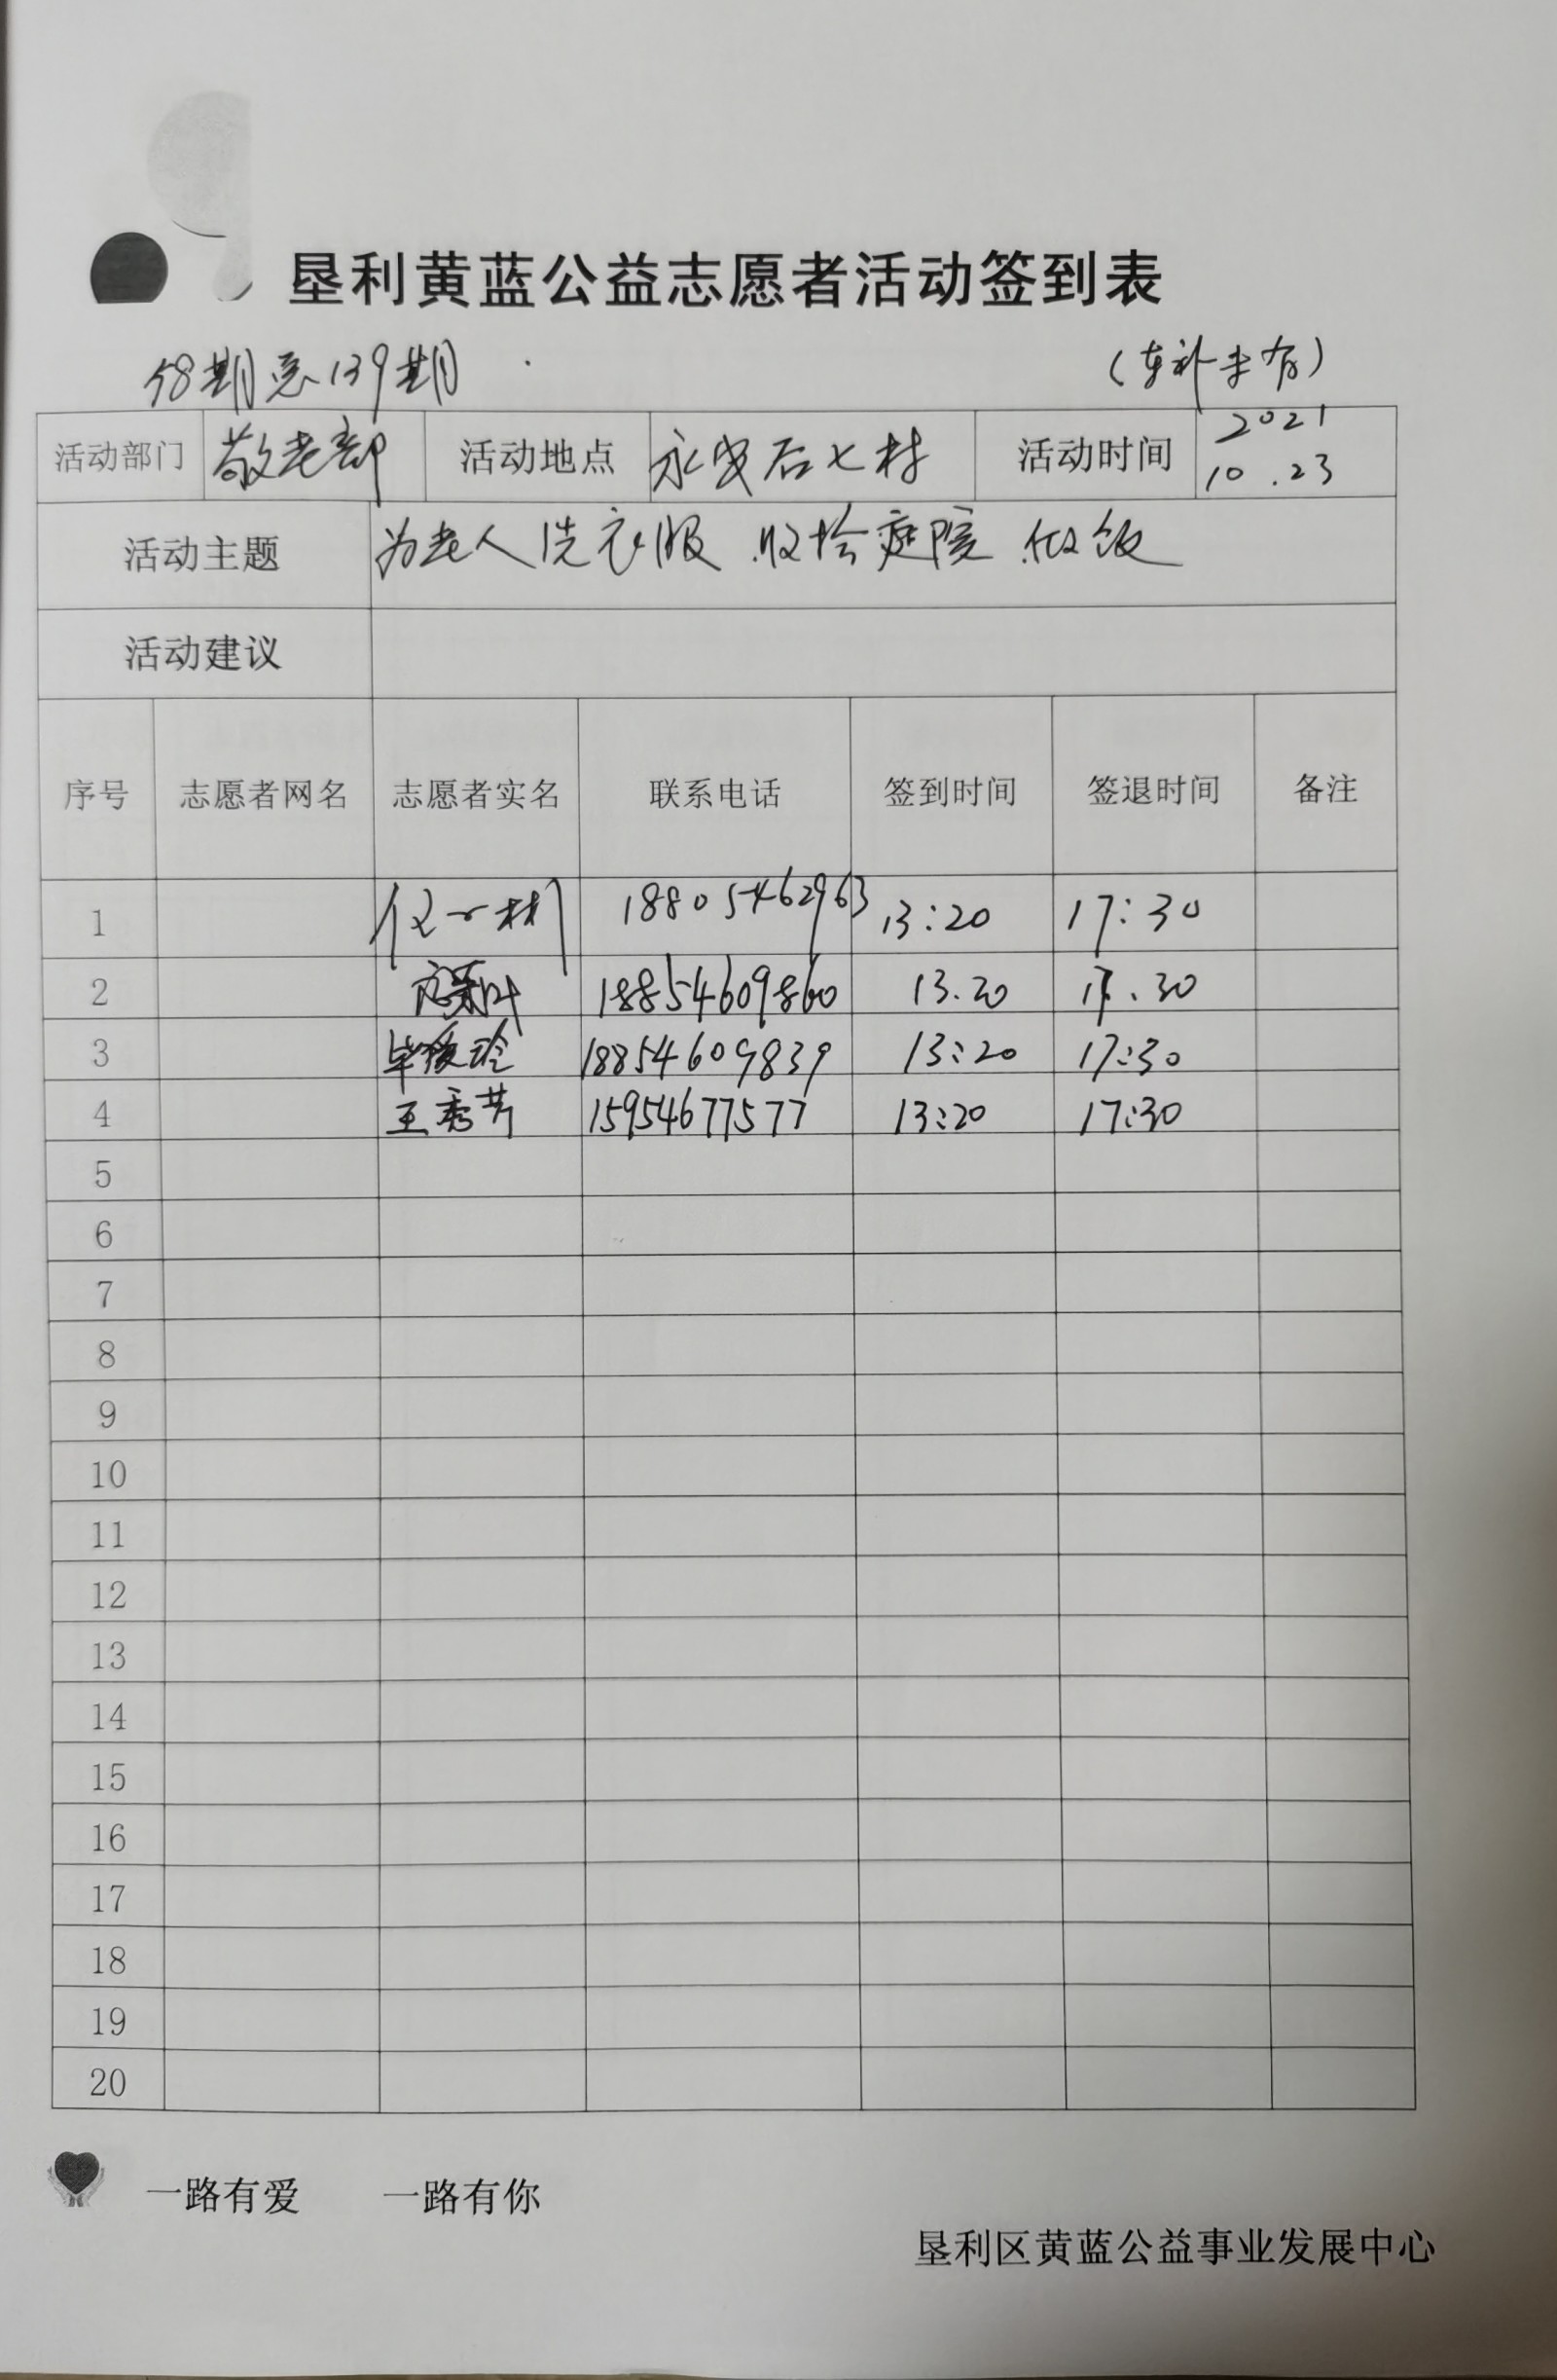 垦利黄蓝公益志愿者活动签到表
58期总139期
(车补未存)
活动部门 敬老部 活动地点 永安后七村 活动时间 2021 10.23
活动主题 为老人洗衣服.收拾庭院.做饭
活动建议
序号 志愿者网名 志愿者实名 联系电话 签到时间 签退时间 备注
1 18805462963 13:20 17:30
2 18854609860 13.20 17.30
3 18854609839 13:20 17:30
4 王秀芳 15954677577 13:20 17:30
5
6
7
8
9
10
11
12
13
14
15
16
17
18
19
20
一路有爱 一路有你
垦利区黄蓝公益事业发展中心